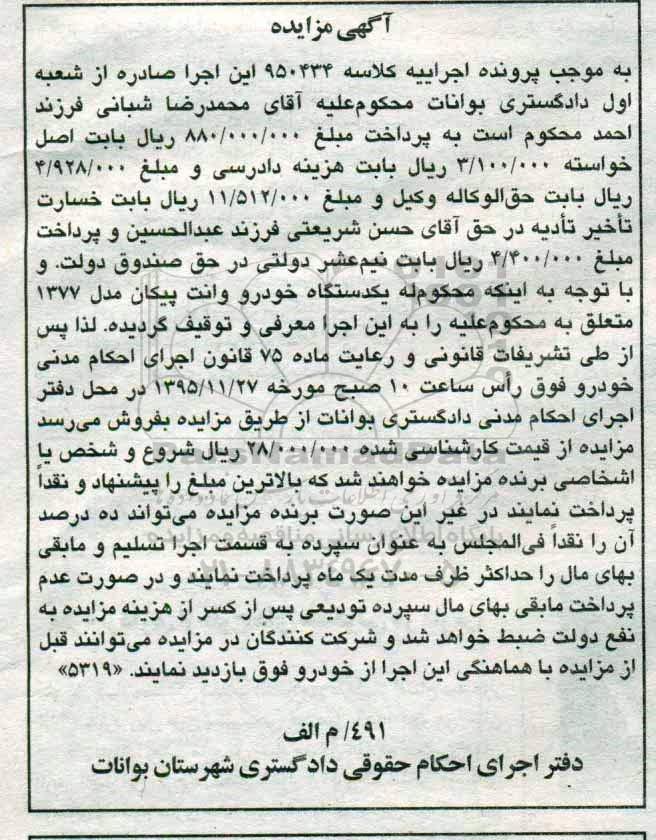 آگهی مزایده
به موجب پرونده اجراییه کلاسه ۹۵۰۴۳۴ این اجرا صادره از شعبه
اول دادگستری بوانات محکوم‌علیه آقای محمدرضا شبانی فرزند
احمد محکوم است به پرداخت مبلغ ۸۸۰/۰۰۰/۰۰۰ ریال بابت اصل
خواسته ۳/۱۰۰/۰۰۰ ریال بابت هزینه دادرسی و مبلغ ۴/۹۲۸/۰۰۰
ریال بابت حق‌الوکاله وکیل و مبلغ ۱۱/۵۱۲/۰۰۰ ریال بابت خسارت
تأخیر تأدیه در حق آقای حسن شریعتی فرزند عبدالحسین و پرداخت
مبلغ ۴/۴۰۰/۰۰۰ ریال بابت نیم‌عشر دولتی در حق صندوق دولت. و
با توجه به اینکه محکوم‌له یکدستگاه خودرو وانت پیکان مدل ۱۳۷۷
متعلق به محکوم‌علیه را به این اجرا معرفی و توقیف گردیده. لذا پس
از طی تشریفات قانونی و رعایت ماده ۷۵ قانون اجرای احکام مدنی
خودرو فوق رأس ساعت ۱۰ صبح مورخه ۱۳۹۵/۱۱/۲۷ در محل دفتر
اجرای احکام مدنی دادگستری بوانات از طریق مزایده بفروش می‌رسد
مزایده از قیمت کارشناسی شده ۲۸/۰۰۰/۰۰۰ ریال شروع و شخص یا
اشخاصی برنده مزایده خواهند شد که بالاترین مبلغ را پیشنهاد و نقداً
پرداخت نمایند در غیر این صورت برنده مزایده می‌تواند ده درصد
آن را نقداً فی‌المجلس به عنوان سپرده به قسمت اجرا تسلیم و مابقی
بهای مال را حداکثر ظرف مدت یک ماه پرداخت نمایند و در صورت عدم
پرداخت مابقی بهای مال سپرده تودیعی پس از کسر از هزینه مزایده به
نفع دولت ضبط خواهد شد و شرکت کنندگان در مزایده می‌توانند قبل
از مزایده با هماهنگی این اجرا از خودرو فوق بازدید نمایند. «۵۳۱۹»
۴۹۱/ م الف
دفتر اجرای احکام حقوقی دادگستری شهرستان بوانات
ParsNamadData
پایگاه اطلاع رسانی مناقصه و مزایده